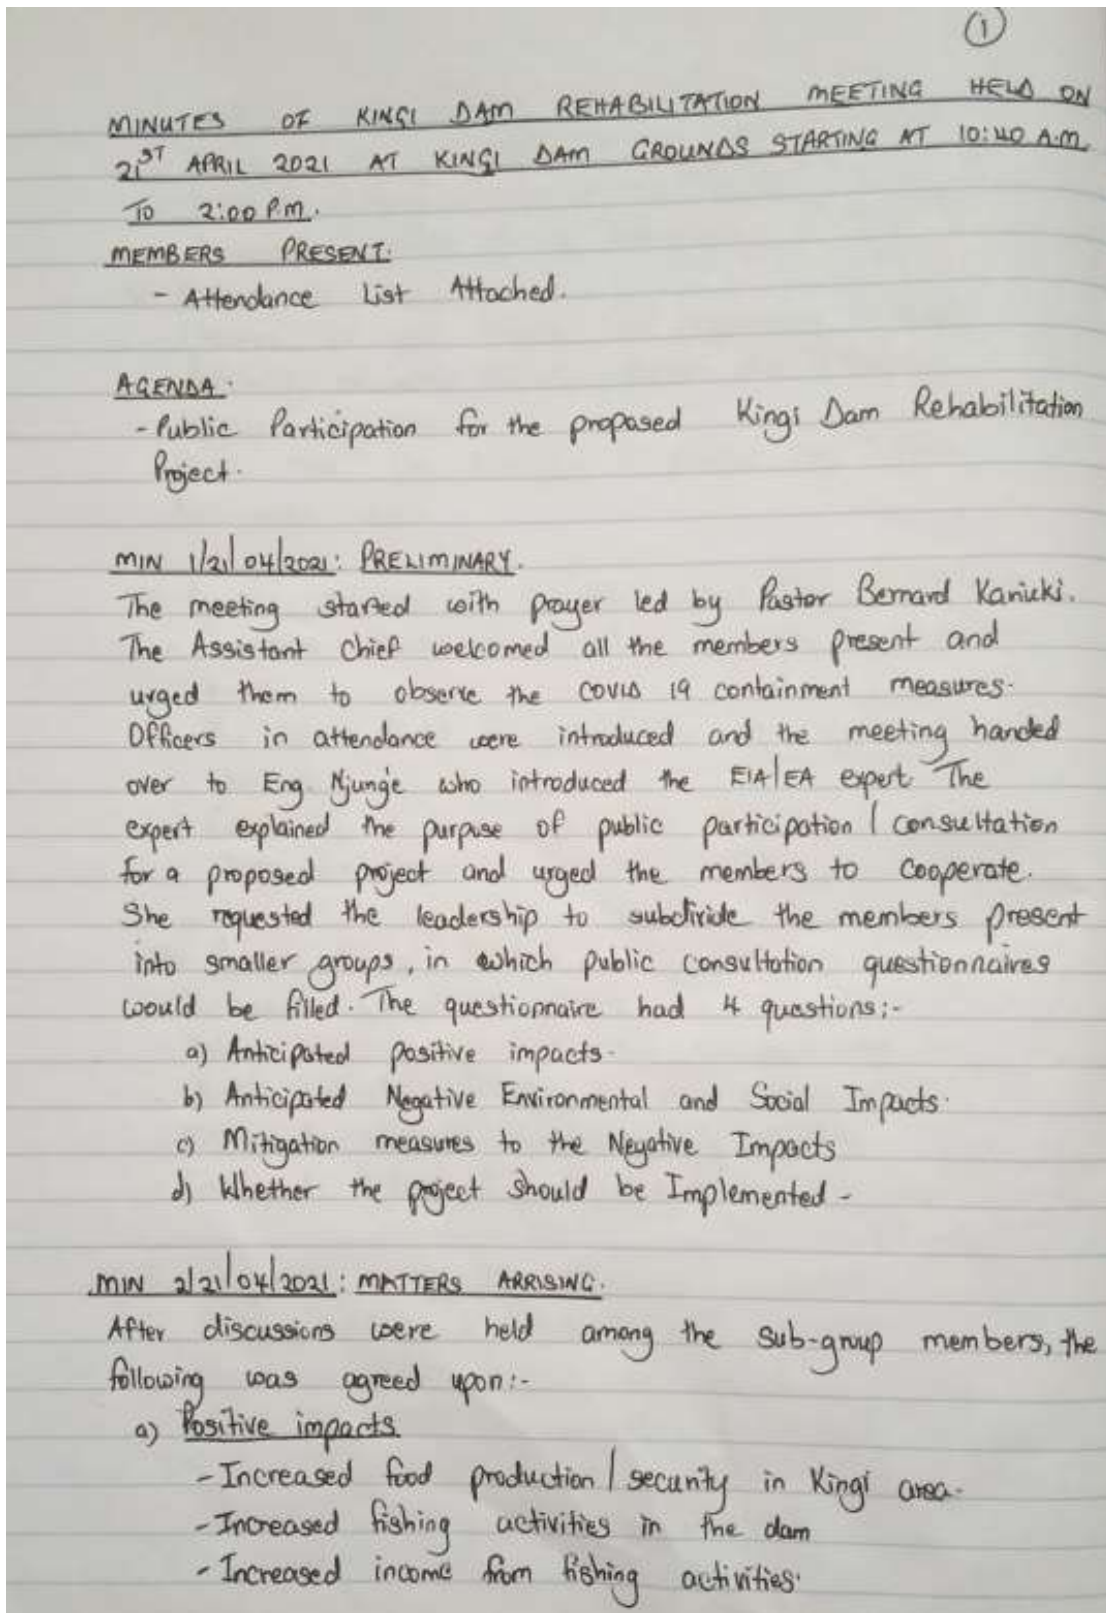 1
MINUTES OF KINGI DAM REHABILITATION MEETING HELD ON
21ST APRIL 2021 AT KINGI DAM GROUNDS STARTING AT 10:40 A.M
TO 2:00 P.M.
MEMBERS PRESENT:
- Attendance List Attached.
AGENDA:
- Public Participation for the proposed Kingi Dam Rehabilitation
Project.
MIN 1/21/04/2021: PRELIMINARY.
The meeting started with prayer led by Pastor Bernard Kaniuki.
The Assistant Chief welcomed all the members present and
urged them to observe the COVID 19 containment measures.
Officers in attendance were introduced and the meeting handed
over to Eng. Njunge who introduced the EIA/EA expert The
expert explained the purpose of public participation / consultation
for a proposed project and urged the members to cooperate.
She requested the leadership to subdivide the members present
into smaller groups, in which public consultation questionnaires
would be filled. The questionnaire had 4 questions:-
a) Anticipated positive impacts.
b) Anticipated Negative Environmental and Social Impacts.
c) Mitigation measures to the Negative Impacts
d) Whether the project should be Implemented -
MIN 2/21/04/2021: MATTERS ARRISING.
After discussions were held among the sub-group members, the
following was agreed upon:-
a) Positive impacts.
- Increased food production / security in Kingi area.
- Increased fishing activities in the dam
- Increased income from fishing activities.